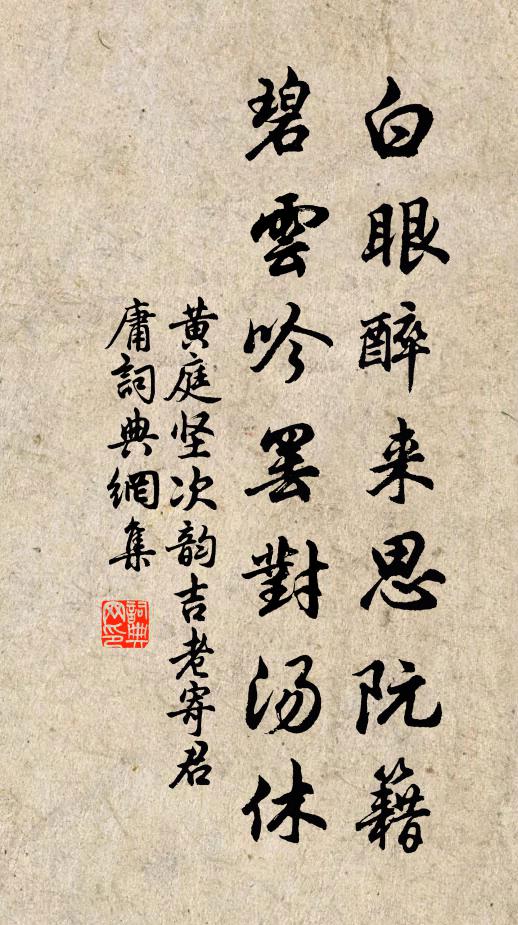 白眼醉来思阮籍
碧雲吟罢對汤休
黄庭坚次韵吉老寄君
庸詞典網集
詞典网印